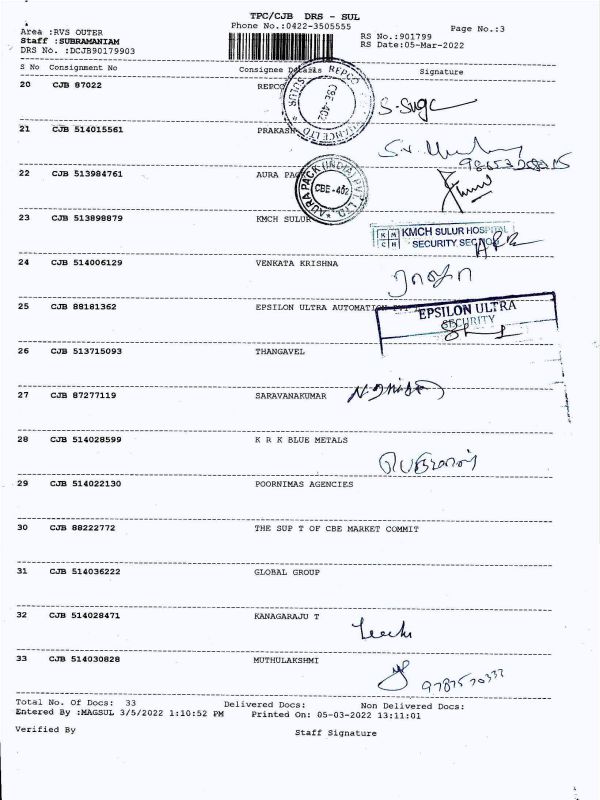 TPC/CJB DRS - SUL
Phone No.:0422-3505555
Page No.:3
Area :RVS OUTER
Staff :SUBRAMANIAM
DRS No. :DCJB90179903
RS No.:901799
RS Date:05-Mar-2022
S No Consignment No Consignee Details Signature
20 CJB 87022 REPCO
REPCO
CBE-402
S-Suga
21 CJB 514015561 PRAKASH
22 CJB 513984761 AURA PAC
AURA PACK (INDIA) PVT LTD.
CBE-402
23 CJB 513898879 KMCH SULUR
KMCH SULUR HOSPITAL
SECURITY SECTION
24 CJB 514006129 VENKATA KRISHNA
25 CJB 88181362 EPSILON ULTRA AUTOMATION
EPSILON ULTRA
SECURITY
26 CJB 513715093 THANGAVEL
27 CJB 87277119 SARAVANAKUMAR
28 CJB 514028599 K R K BLUE METALS
29 CJB 514022130 POORNIMAS AGENCIES
30 CJB 88222772 THE SUP T OF CBE MARKET COMMIT
31 CJB 514036222 GLOBAL GROUP
32 CJB 514028471 KANAGARAJU T
33 CJB 514030828 MUTHULAKSHMI
9787570337
Total No. Of Docs: 33 Delivered Docs: Non Delivered Docs:
Entered By :MAGSUL 3/5/2022 1:10:52 PM Printed On: 05-03-2022 13:11:01
Verified By Staff Signature